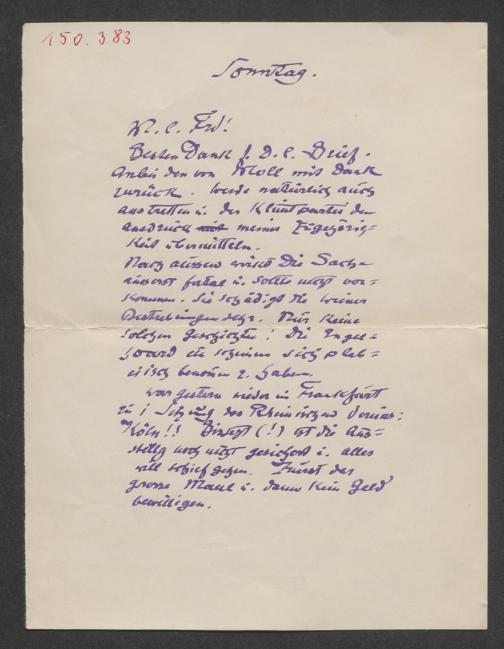 150.383
Sonntag.
M. l. Frd!
Besten Dank f. D. l. Brief.
Anbei den von Moll mit Dank
zurück. Werde natürlich auch
austretten u. der Klimtpartei den
Ausdruck meiner Zugehörig-
keit übermitteln.
Nach aussen wirkt die Sache
äusserst fatal u. sollte nicht vor-
kommen. Sie schädigt die wiener
Bestrebungen sehr. Nur keine
solchen Geschichten! Die Engel-
hard etc scheinen sich pleb-
eisch benommen z. haben.
war gestern wieder in Frankfurt
zu 1 Sitzung des Rheinischen Vereins:
Köln!! Binsept (!) ist die Aus-
stellg noch nicht gesichert u. alles
will schief gehen. Zuerst das
grosse Maul u. dann kein Geld
bewilligen.